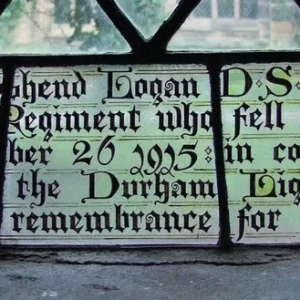 shend Logan D·S·
Regiment who fell
ber 26 1915: in co
the Durham Lig
remembrance for